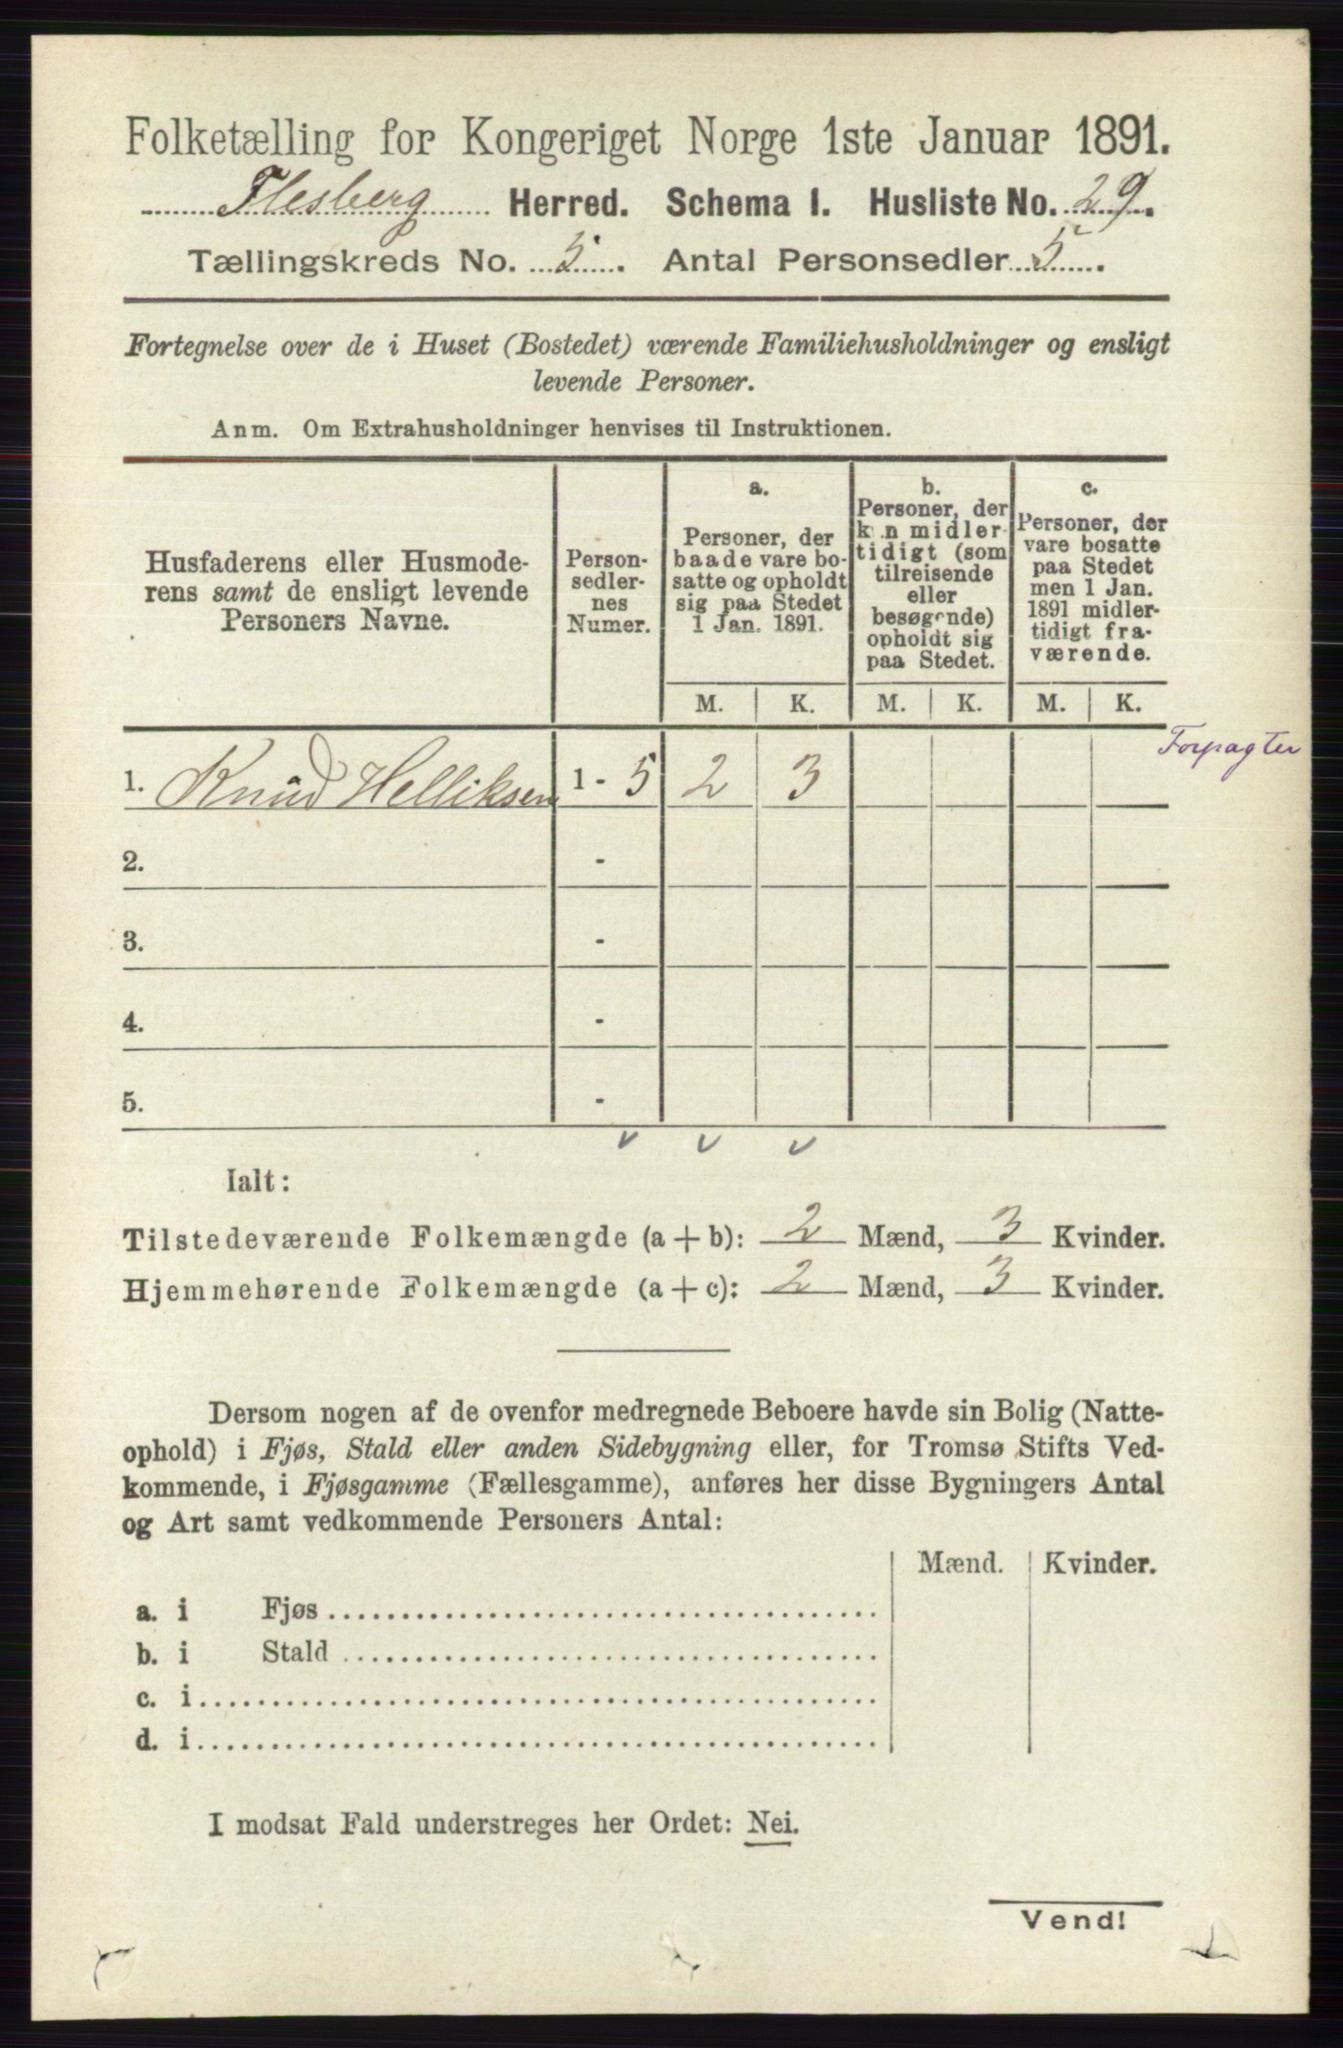 Folketælling for Kongeriget Norge 1ste Januar 1891.
Flesberg Herred. Schema I. Husliste No. 29.
Tællingskreds No. 5. Antal Personsedler 5.
Fortegnelse over de i Huset (Bostedet) værende Familiehusholdninger og ensligt
levende Personer.
Anm. Om Extrahusholdninger henvises til Instruktionen.
Husfaderens eller Husmode-
rens samt de ensligt levende
Personers Navne.
Person-
sedler-
nes
Numer.
a.
Personer, der
baade vare bo-
satte og opholdt
sig paa Stedet
1 Jan. 1891.
b.
Personer, der
kun midler-
tidigt (som
tilreisende
eller
besøgende)
opholdt sig
paa Stedet.
c.
Personer, der
vare bosatte
paa Stedet
men 1 Jan.
1891 midler-
tidigt fra-
værende.
M. K. M. K. M. K.
Forpagter
1. Knud Helliksen 1 - 5 2 3
2. -
3. -
4. -
5. -
Ialt:
Tilstedeværende Folkemængde (a + b): 2 Mænd, 3 Kvinder.
Hjemmehørende Folkemængde (a + c): 2 Mænd, 3 Kvinder.
Dersom nogen af de ovenfor medregnede Beboere havde sin Bolig (Natte-
ophold) i Fjøs, Stald eller anden Sidebygning eller, for Tromsø Stifts Ved-
kommende, i Fjøsgamme (Fællesgamme), anføres her disse Bygningers Antal
og Art samt vedkommende Personers Antal:
Mænd. Kvinder.
a. i Fjøs
b. i Stald
c. i
d. i
I modsat Fald understreges her Ordet: Nei.
Vend!